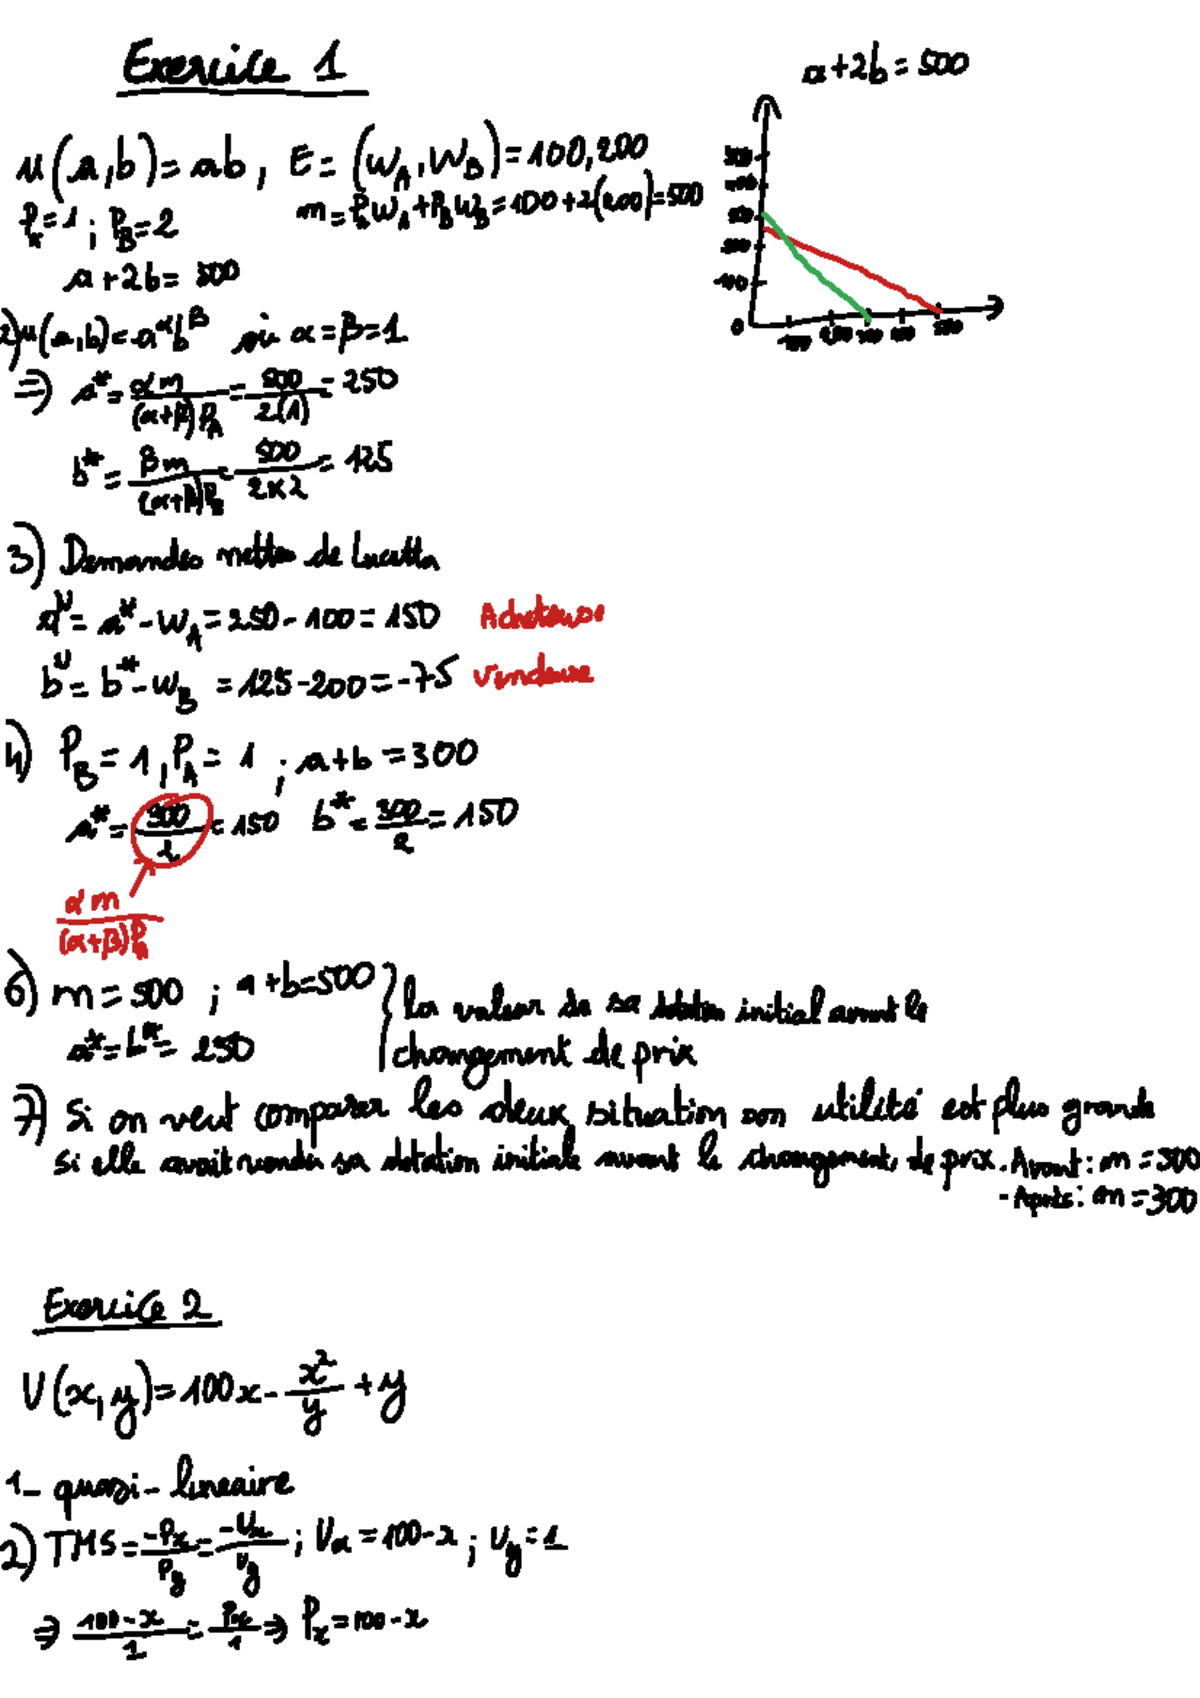 Exercice 1
a+2b = 500
u(a,b) = ab, E = (W_A, W_B) = 100, 200
P_A = 1 ; P_B = 2
m = P_A W_A + P_B W_B = 100 + 2(200) = 500
a + 2b = 500
2) u(a,b) = a^α b^β où α = β = 1
⇒ a* = αm/((α+β)P_A) = 500/2(1) = 250
b* = βm/((α+β)P_B) = 500/2×2 = 125
3) Demandes nettes de Lucetta
a^N = a* - W_A = 250 - 100 = 150 Acheteuse
b^N = b* - W_B = 125 - 200 = -75 Vendeuse
4) P_B = 1, P_A = 1 ; a+b = 300
a* = 300/2 = 150 b* = 300/2 = 150
αm/((α+β)P_A)
6) m = 500 ; a+b = 500 } la valeur de sa dotation initial avant le
a* = b* = 250 changement de prix
7) Si on veut comparer les deux situation son utilité est plus grande
si elle avait vendu sa dotation initiale avant le changement de prix. - Avant : m = 500
- Après : m = 300
Exercice 2
U(x,y) = 100x - x²/y + y
1- quasi-lineaire
2) TMS = -P_x/P_y = -U_x/U_y ; U_x = 100-x ; U_y = 1
⇒ 100-x/1 = P_x/1 ⇒ P_x = 100-x